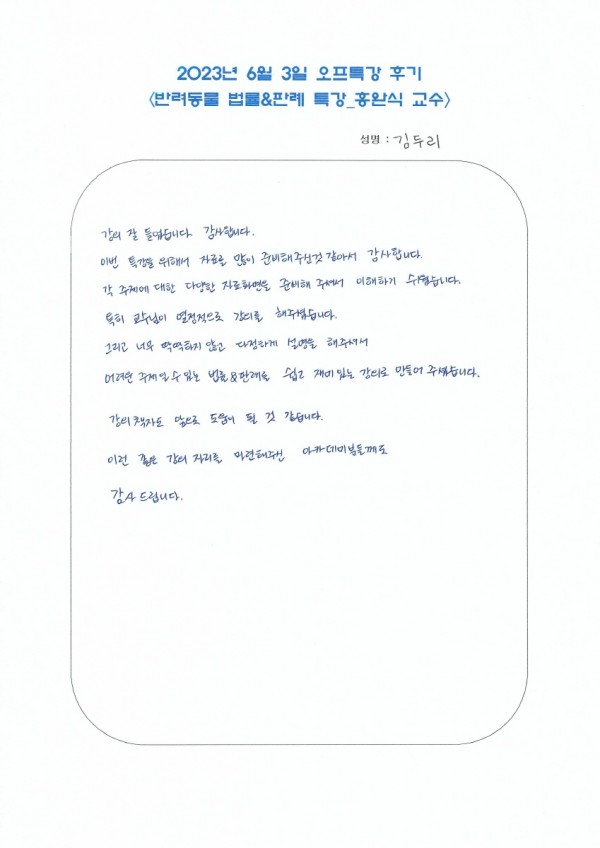 2023년 6월 3일 오프특강 후기
<반려동물 법률&판례 특강_홍완식 교수>
성명 : 김두리
강의 잘 들었습니다. 감사합니다.
이번 특강을 위해서 자료를 많이 준비해주신것 같아서 감사합니다.
각 주제에 대한 다양한 자료화면을 준비해 주셔서 이해하기 쉬웠습니다.
특히 교수님이 열정적으로 강의를 해주셨습니다.
그리고 너무 딱딱하지 않고 다정하게 설명을 해주셔서
어려운 주제일 수 있는 법률&판례를 쉽고 재미있는 강의로 만들어 주셨습니다.
강의 책자도 앞으로 도움이 될 것 같습니다.
이런 좋은 강의 자리를 마련해주신 아카데미분들께도
감사드립니다.